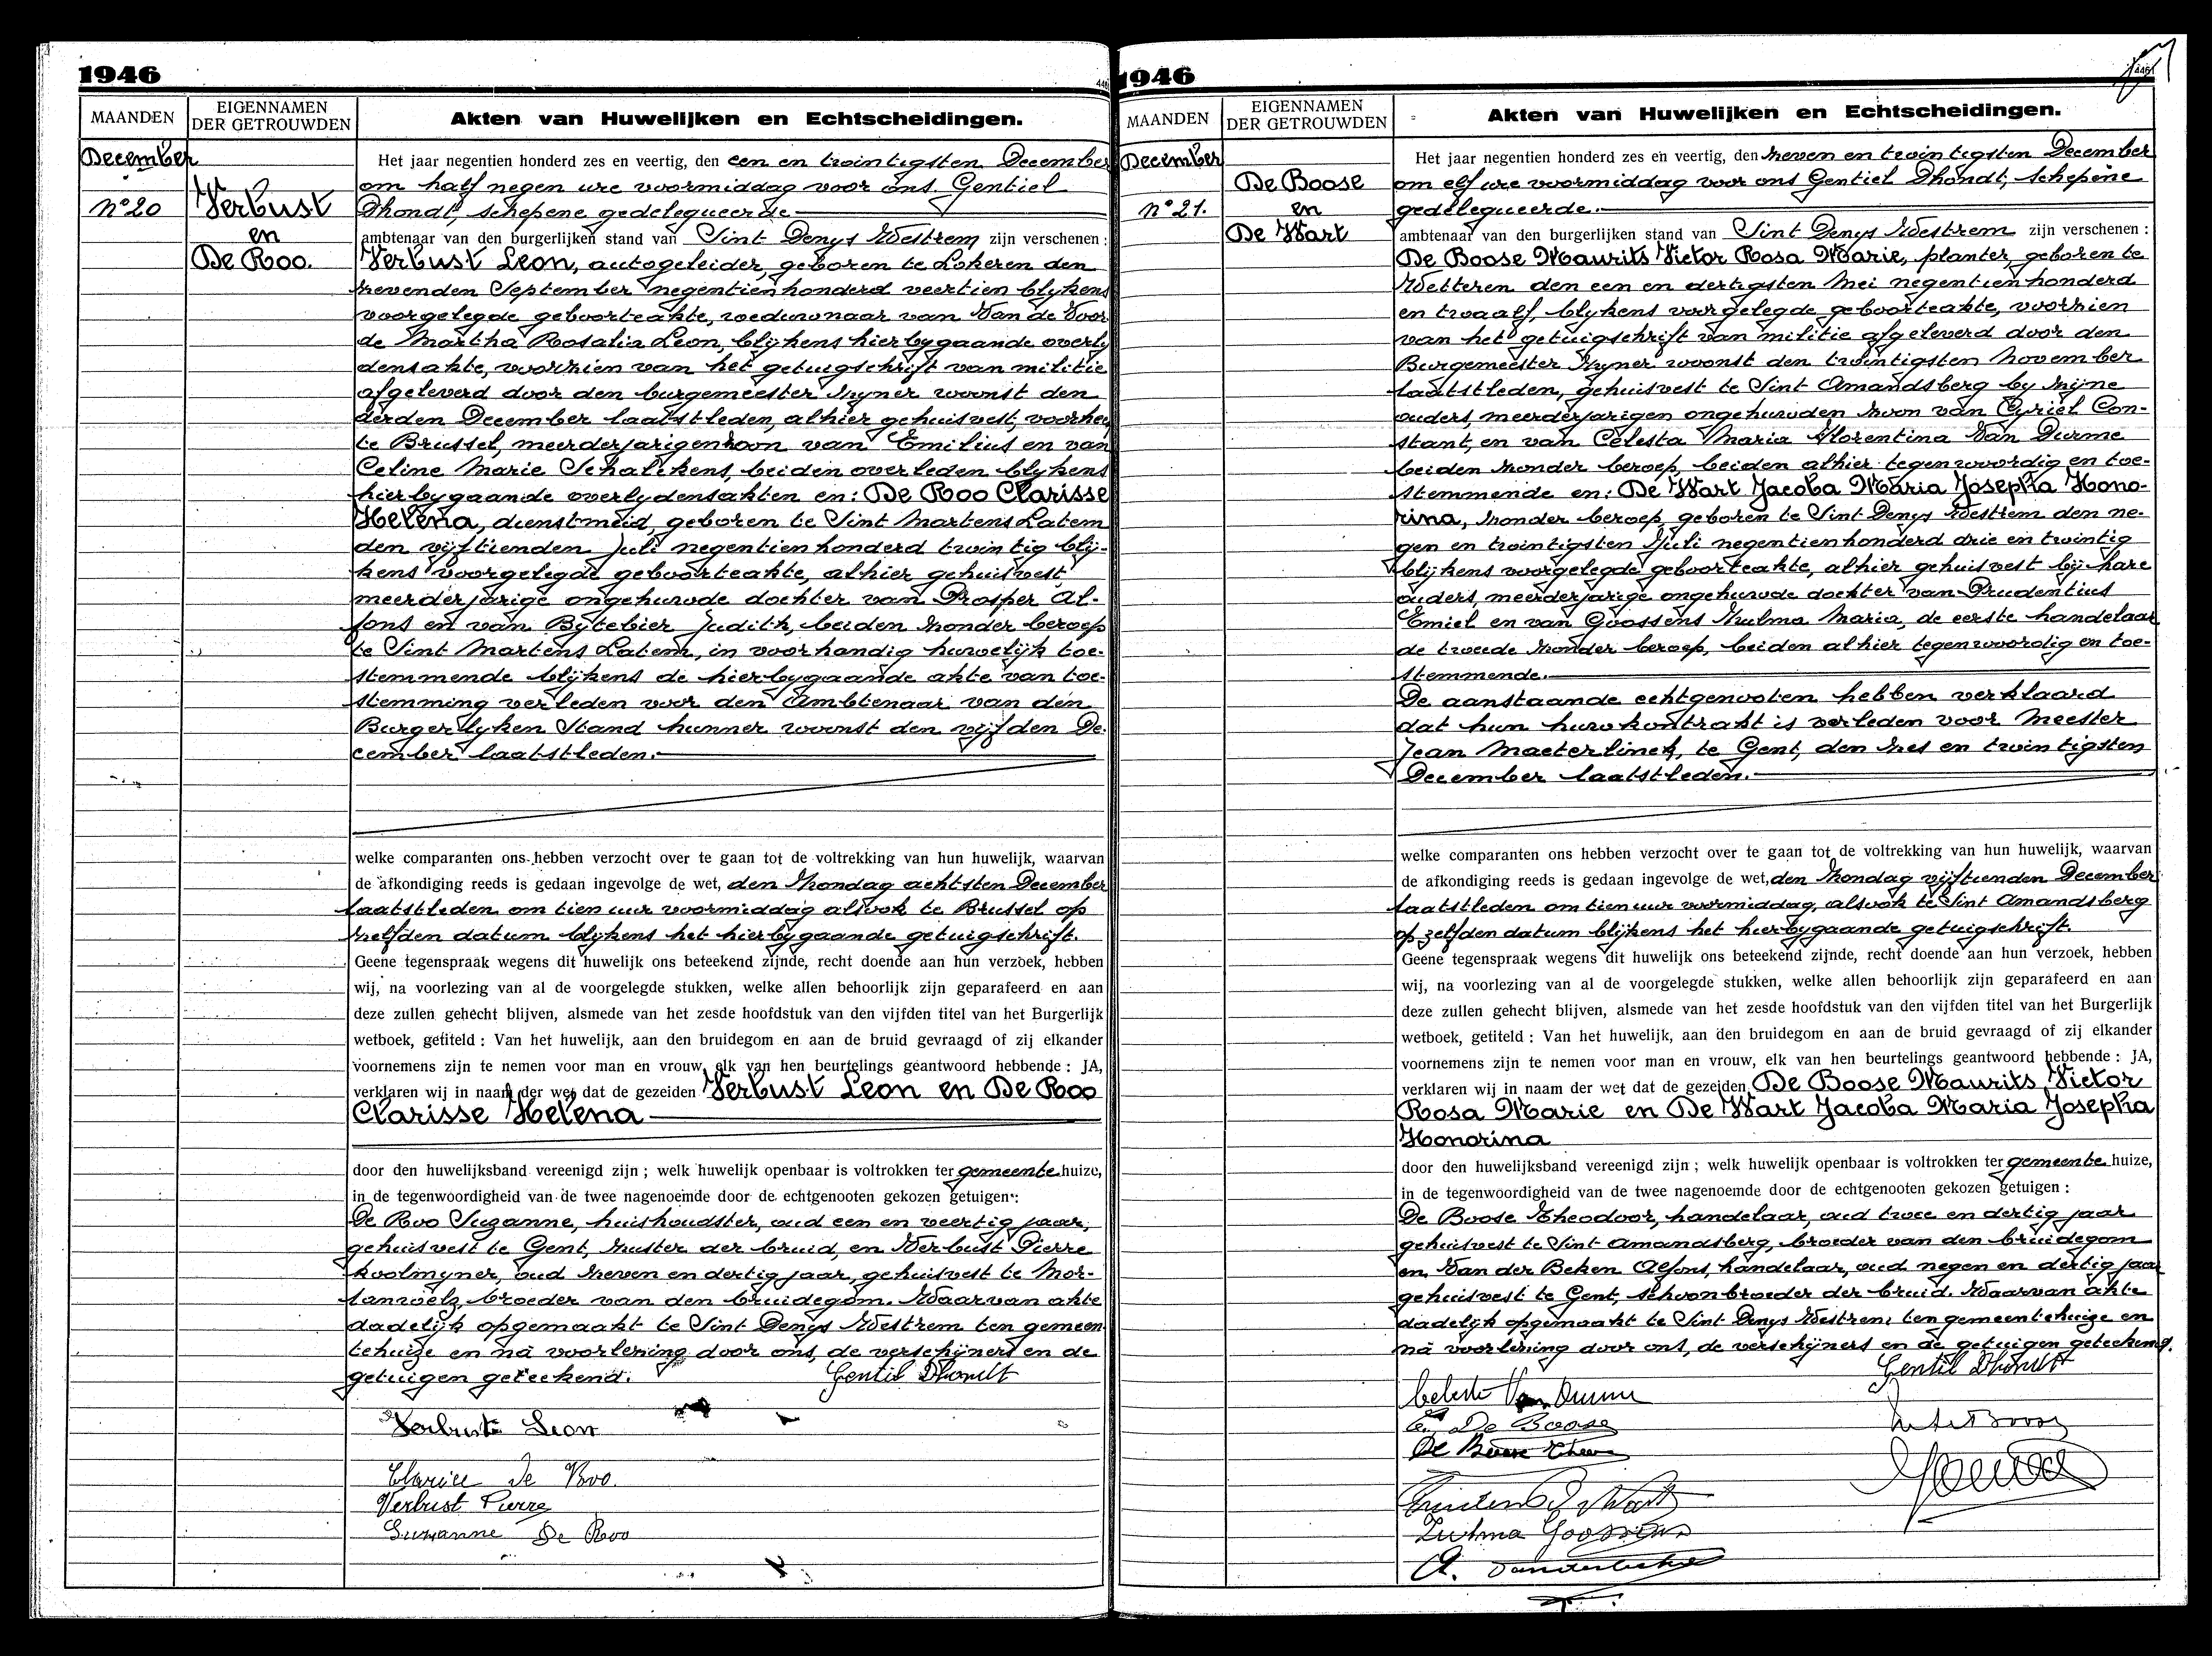 1946
MAANDEN
EIGENNAMEN
DER GETROUWDEN
Akten van Huwelijken en Echtscheidingen.
December
n° 20
Verbust
en
De Roo.
Het jaar negentien honderd zes en veertig, den een en twintigsten December
om half negen ure voormiddag voor ons Gentiel
Dhondt, schepene gedelegueerde
ambtenaar van den burgerlijken stand van Sint Denys Westrem zijn verschenen :
Verbust Leon, autogeleider, geboren te Lokeren den
zevenden September negentienhonderd veertien blykens
voorgelegde geboorteakte, weduwnaar van Van de Voor
de Martha Rosalia Leon, blijkens hierbygaande overly
densakte, voorzien van het getuigschrift van militie
afgeleverd door den burgemeester zyner woonst den
derden December laatstleden, alhier gehuisvest, voorhee
te Brussel, meerderjarigen zoon van Emilius en van
Celine Marie Schalikens, beiden overleden blykens
hierbygaande overlydensakten en: De Roo Clarisse
Helena, dienstmeid, geboren te Sint Martens Latem
den vijftienden Juli negentienhonderd twintig blij-
kens voorgelegde geboorteakte, alhier gehuisvest
meerderjarige ongehuwde dochter van Prosper Al-
fons en van Bytebier Judith, beiden zonder beroep
te Sint Martens Latem, in voorhandig huwelijk toe-
stemmende blijkens de hierbygaande akte van toe-
stemming verleden voor den Ambtenaar van den
Burgerlyken Stand hunner woonst den vijfden De-
cember laatstleden.
welke comparanten ons hebben verzocht over te gaan tot de voltrekking van hun huwelijk, waarvan
de afkondiging reeds is gedaan ingevolge de wet, den Zondag achtsten December
laatstleden om tien uur voormiddag alsook te Brussel op
zelfden datum blykens het hierbygaande getuigschrift.
Geene tegenspraak wegens dit huwelijk ons beteekend zijnde, recht doende aan hun verzoek, hebben
wij, na voorlezing van al de voorgelegde stukken, welke allen behoorlijk zijn geparafeerd en aan
deze zullen gehecht blijven, alsmede van het zesde hoofdstuk van den vijfden titel van het Burgerlijk
wetboek, getiteld : Van het huwelijk, aan den bruidegom en aan de bruid gevraagd of zij elkander
voornemens zijn te nemen voor man en vrouw, elk van hen beurtelings geantwoord hebbende : JA,
verklaren wij in naam der wet dat de gezeiden Verbust Leon en De Roo
Clarisse Helena
door den huwelijksband vereenigd zijn ; welk huwelijk openbaar is voltrokken ter gemeente huize,
in de tegenwoordigheid van de twee nagenoemde door de echtgenooten gekozen getuigen :
De Roo Suzanne, huishoudster, oud een en veertig jaar,
gehuisvest te Gent, zuster der bruid, en Verbust Pierre
koolmyner, oud zeven en dertig jaar, gehuisvest te Mor-
lanwelz, broeder van den bruidegom. Waarvan akte
dadelijk opgemaakt te Sint Denys Westrem ten gemeen
tehuize en na voorlezing door ons, de verschijners en de
getuigen geteekend.
Gentil Dhondt
Verbust Leon
Clarice De Roo.
Verbust Pierre
Suzanne De Roo
1946
446
MAANDEN
EIGENNAMEN
DER GETROUWDEN
Akten van Huwelijken en Echtscheidingen.
December
n° 21.
De Boose
en
De Wart
Het jaar negentien honderd zes en veertig, den zeven en twintigsten December
om elf ure voormiddag voor ons Gentiel Dhondt, schepene
gedelegueerde.
ambtenaar van den burgerlijken stand van Sint Denys Westrem zijn verschenen :
De Boose Maurits Victor Rosa Marie, planter, geboren te
Wetteren den een en dertigsten Mei negentienhonderd
en twaalf, blykens voorgelegde geboorteakte, voorzien
van het getuigschrift van militie afgeleverd door den
Burgemeester zyner woonst den twintigsten November
laatstleden, gehuisvest te Sint Amandsberg by zijne
ouders, meerderjarigen ongehuwden zoon van Cyriel Con-
stant, en van Celesta Maria Florentina Van Durme
beiden zonder beroep, beiden alhier tegenwoordig en toe-
stemmende en: De Wart Jacoba Maria Josepha Hono-
rina, zonder beroep, geboren te Sint Denys Westrem den ne-
gen en twintigsten Juli negentienhonderd drie en twintig
blijkens voorgelegde geboorteakte, alhier gehuisvest bij hare
ouders, meerderjarige ongehuwde dochter van Prudentius
Emiel en van Goossens Zulma Maria, de eerste handelaar
de tweede zonder beroep, beiden alhier tegenwoordig en toe-
stemmende.
De aanstaande echtgenooten hebben verklaard
dat hun huwkontrakt is verleden voor Meester
Jean Maeterlinck, te Gent, den zes en twintigsten
December laatstleden.
welke comparanten ons hebben verzocht over te gaan tot de voltrekking van hun huwelijk, waarvan
de afkondiging reeds is gedaan ingevolge de wet, den Zondag vijftienden December
laatstleden om tien uur voormiddag, alsook te Sint Amandsberg
op zelfden datum blijkens het hierbygaande getuigschrift.
Geene tegenspraak wegens dit huwelijk ons beteekend zijnde, recht doende aan hun verzoek, hebben
wij, na voorlezing van al de voorgelegde stukken, welke allen behoorlijk zijn geparafeerd en aan
deze zullen gehecht blijven, alsmede van het zesde hoofdstuk van den vijfden titel van het Burgerlijk
wetboek, getiteld : Van het huwelijk, aan den bruidegom en aan de bruid gevraagd of zij elkander
voornemens zijn te nemen voor man en vrouw, elk van hen beurtelings geantwoord hebbende : JA,
verklaren wij in naam der wet dat de gezeiden De Boose Maurits Victor
Rosa Marie en De Wart Jacoba Maria Josepha
Honorina
door den huwelijksband vereenigd zijn ; welk huwelijk openbaar is voltrokken ter gemeente huize,
in de tegenwoordigheid van de twee nagenoemde door de echtgenooten gekozen getuigen :
De Boose Theodoor, handelaar, oud twee en dertig jaar
gehuisvest te Sint Amandsberg, broeder van den bruidegom
en Van der Beken Alfons, handelaar, oud negen en dertig jaar
gehuisvest te Gent, schoonbroeder der bruid. Waarvan akte
dadelijk opgemaakt te Sint Denys Westrem, ten gemeentehuize en
na voorlezing door ons, de verschijners en de getuigen geteekend.
Gentil Dhondt
Celeste Van Durme
C. De Boose
De Boose Theo
Zulma Goossens
A. Vanderbeken